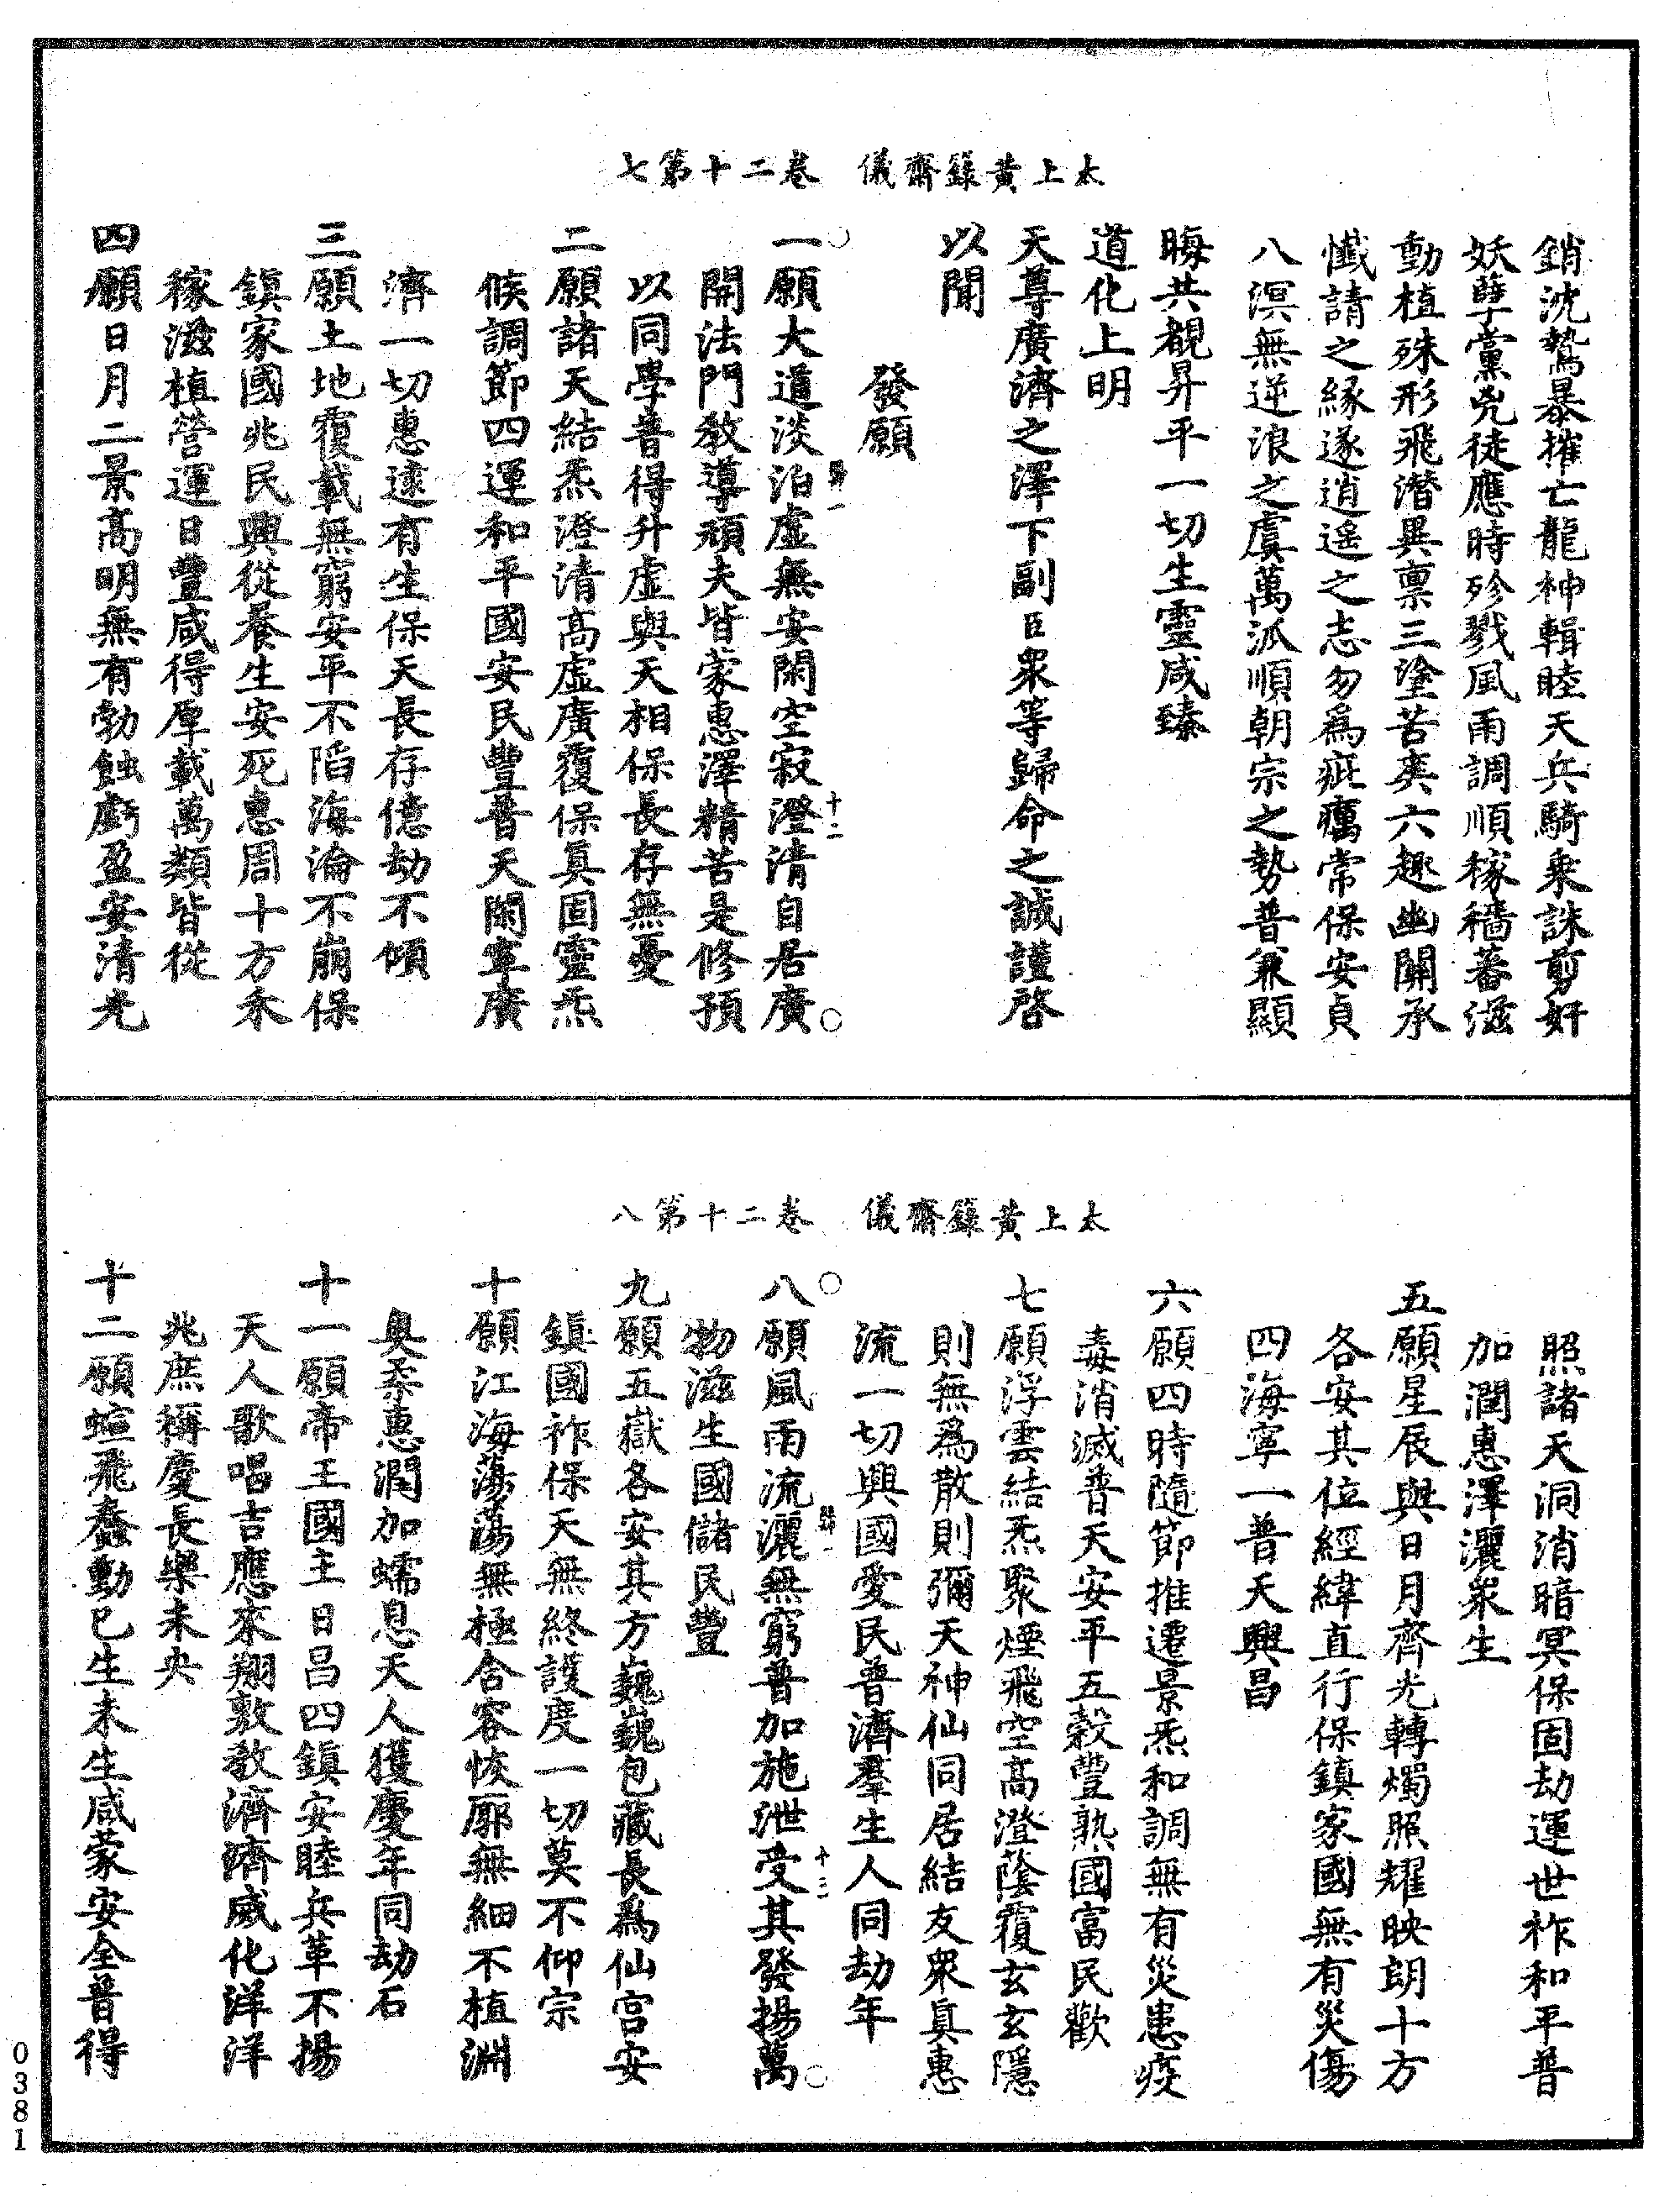 太上黃籙齋儀　卷二十第七
銷沈鷙暴摧亡龍神輯睦天兵騎乘誅剪奸
妖孽黨兇徒應時殄戮風雨調順稼穡蕃滋
動植殊形飛潛異禀三塗苦爽六趣幽關承
懺請之緣遂逍遙之志勿爲疵癘常保安貞
八溟無逆浪之虞萬派順朝宗之勢普兼顯
晦共覩昇平一切生靈咸臻
道化上明
天尊廣濟之澤下副臣衆等歸命之誠謹啓
以聞
發願
一願大道淡泊虛無安閑空寂澄清自居廣
開法門教導頑夫皆蒙惠澤精苦是修預
以同學普得升虛與天相保長存無憂
二願諸天結炁澄清高虛廣覆保真固靈炁
候調節四運和平國安民豐普天閑寧廣
濟一切惠逮有生保天長存億劫不傾
三願土地覆載無窮安平不陷海淪不崩保
鎮家國兆民興從養生安死惠周十方禾
稼滋植營運日豐咸得厚載萬類皆從
四願日月二景高明無有勃蝕虧盈安清光
十二
太上黃籙齋儀　卷二十第八
照諸天洞消暗冥保固劫運世祚和平普
加潤惠澤灑衆生
五願星辰與日月齊光轉燭照耀映朗十方
各安其位經緯直行保鎮家國無有災傷
四海寧一普天興昌
六願四時隨節推遷景炁和調無有災患疫
毒消滅普天安平五穀豐熟國富民歡
七願浮雲結炁聚煙飛空高澄蔭覆玄玄隱
則無爲散則彌天神仙同居結友衆真惠
流一切興國愛民普濟羣生人同劫年
八願風雨流灑無窮普加施泄受其發揚萬
物滋生國儲民豐
九願五嶽各安其方巍巍包藏長爲仙宮安
鎮國祚保天無終護度一切莫不仰宗
十願江海蕩蕩無極含容恢廓無細不植淵
奥柔惠潤加蠕息天人獲慶年同劫石
十一願帝王國主日昌四鎮安睦兵革不揚
天人歌唱吉應來翔敷教濟濟威化洋洋
兆庶稱慶長樂未央
十二願蝖飛蠢動已生未生咸蒙安全普得
十三
0381